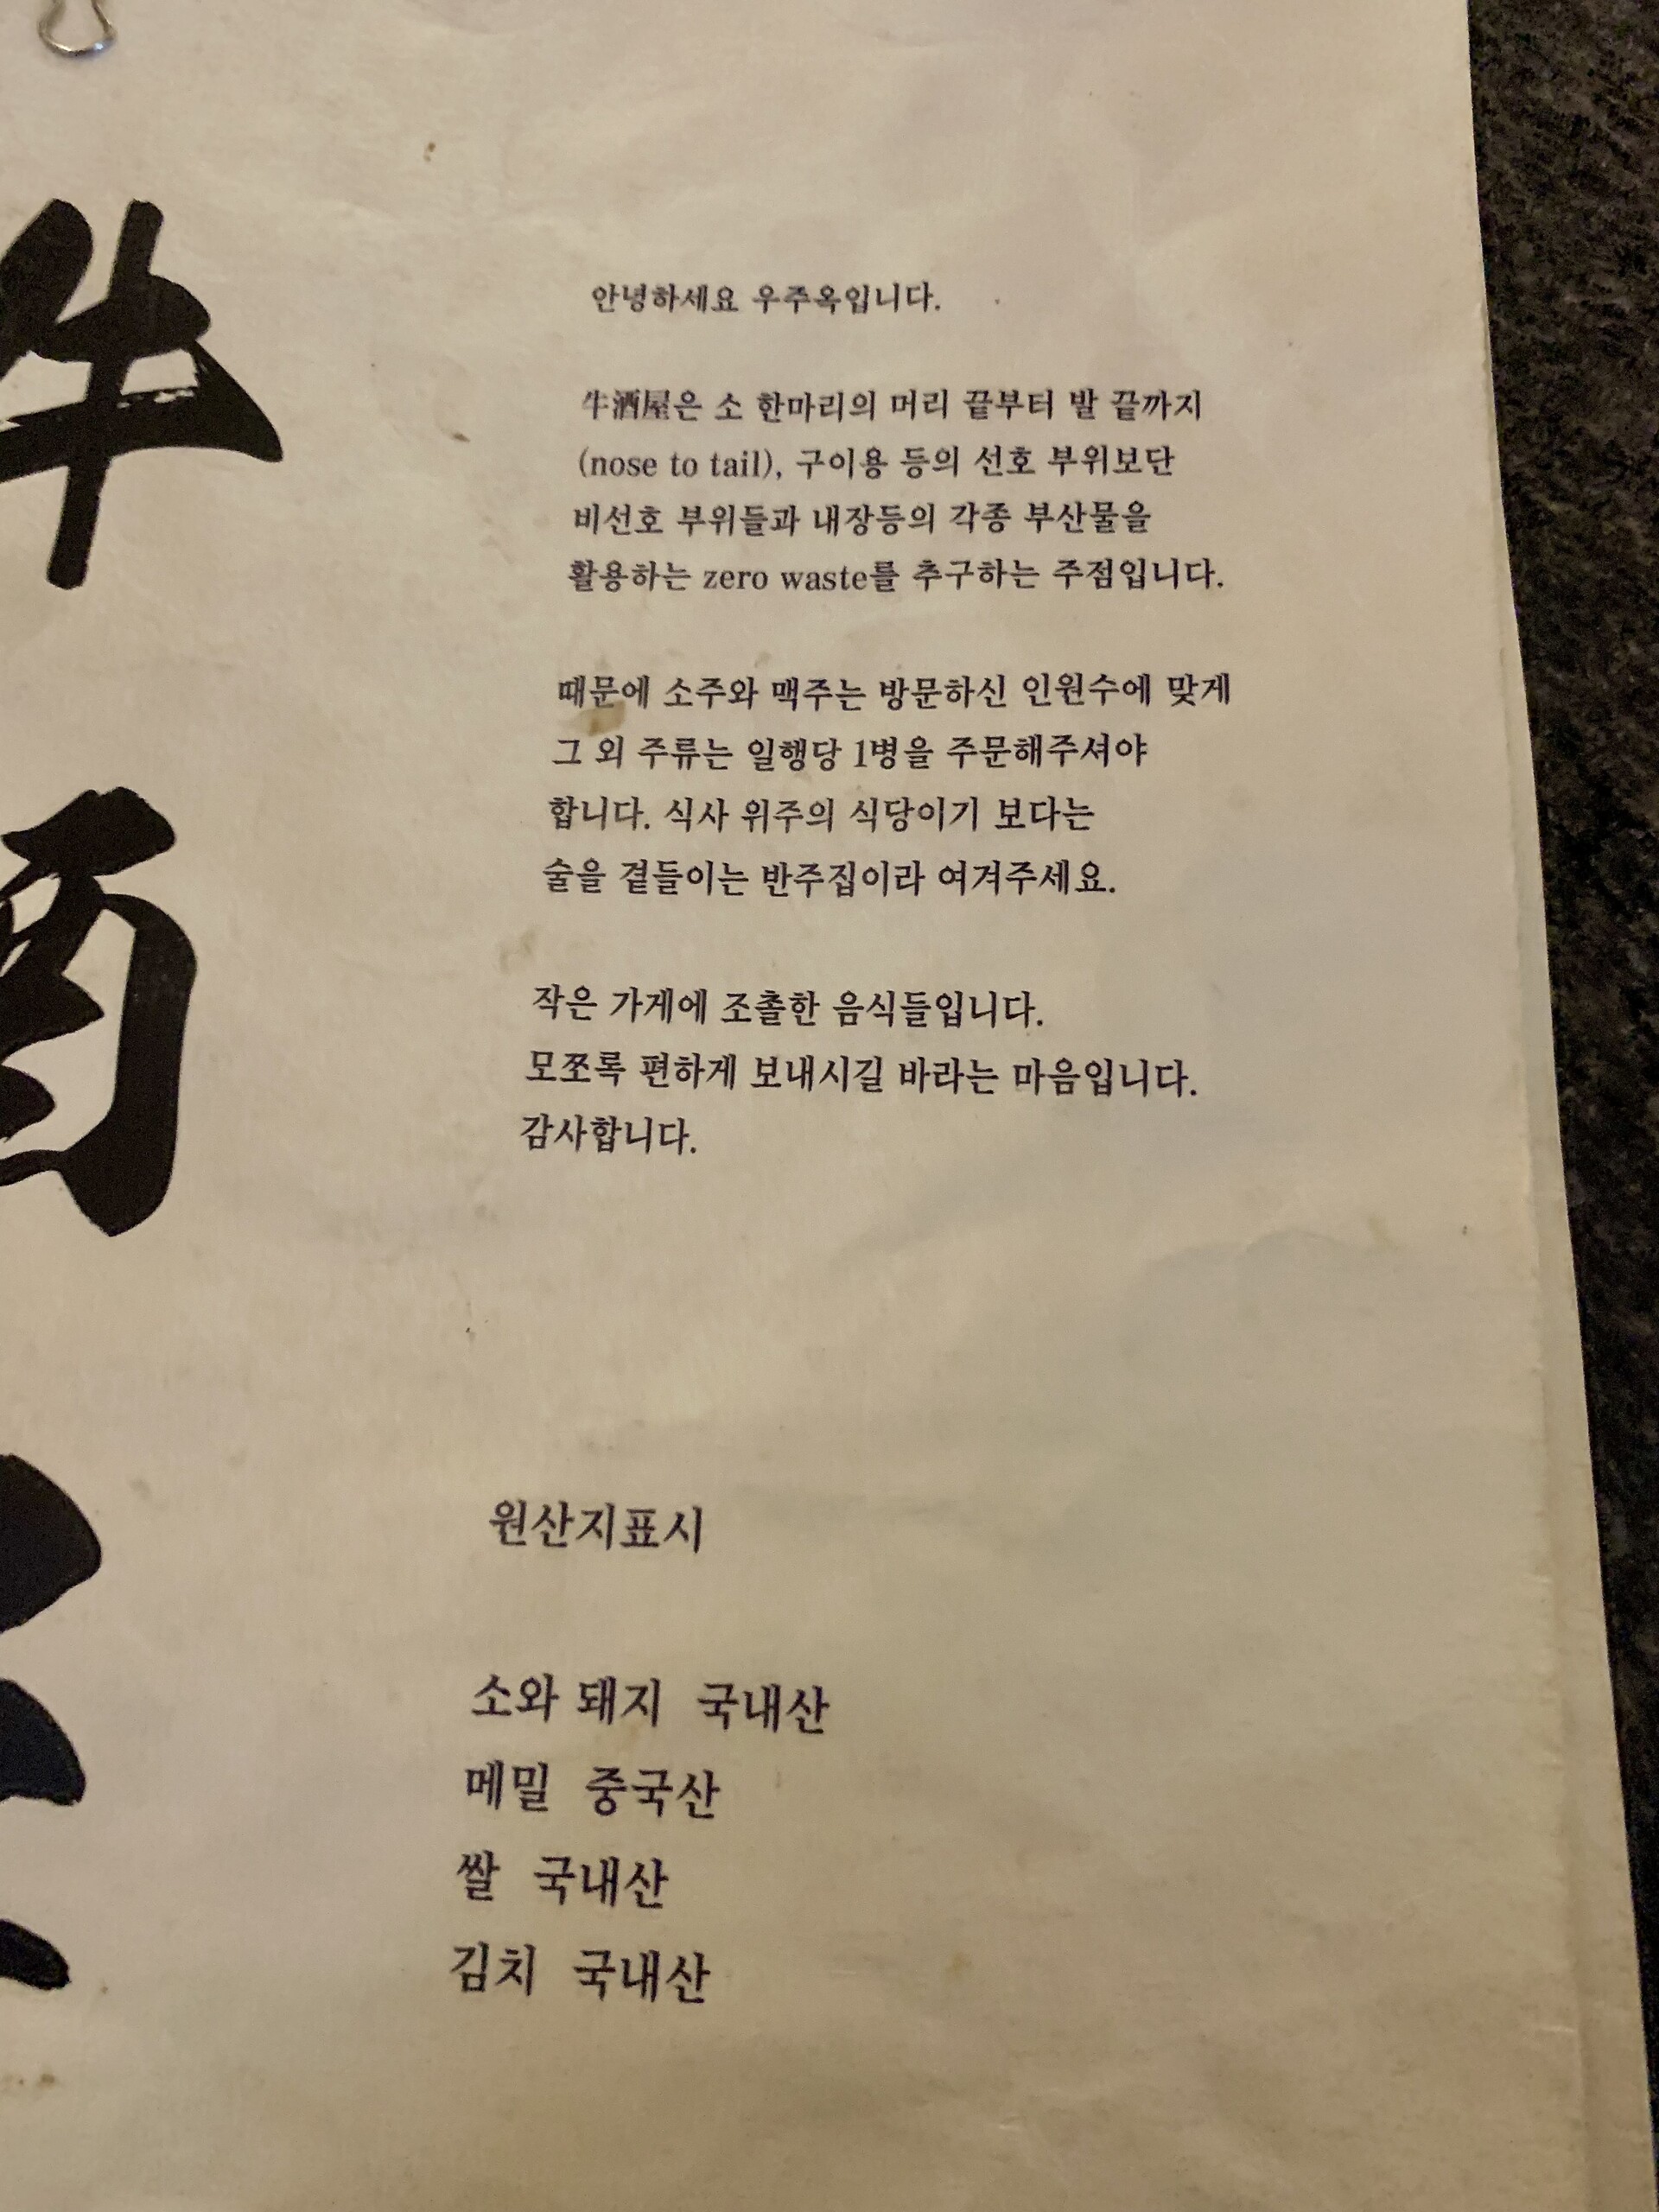 牛
酒
안녕하세요 우주옥입니다.
牛酒屋은 소 한마리의 머리 끝부터 발 끝까지
(nose to tail), 구이용 등의 선호 부위보단
비선호 부위들과 내장등의 각종 부산물을
활용하는 zero waste를 추구하는 주점입니다.
때문에 소주와 맥주는 방문하신 인원수에 맞게
그 외 주류는 일행당 1병을 주문해주셔야
합니다. 식사 위주의 식당이기 보다는
술을 곁들이는 반주집이라 여겨주세요.
작은 가게에 조촐한 음식들입니다.
모쪼록 편하게 보내시길 바라는 마음입니다.
감사합니다.
원산지표시
소와 돼지 국내산
메밀 중국산
쌀 국내산
김치 국내산